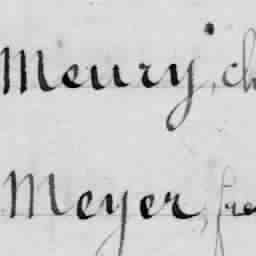 Meury, ch
Meyer, fre